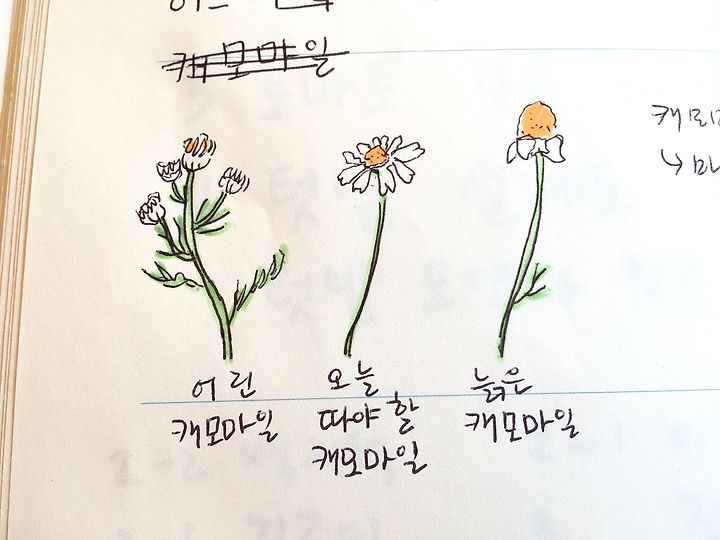 캐모마일
캐모
어린
캐모마일
오늘
따야 할
캐모마일
늙은
캐모마일